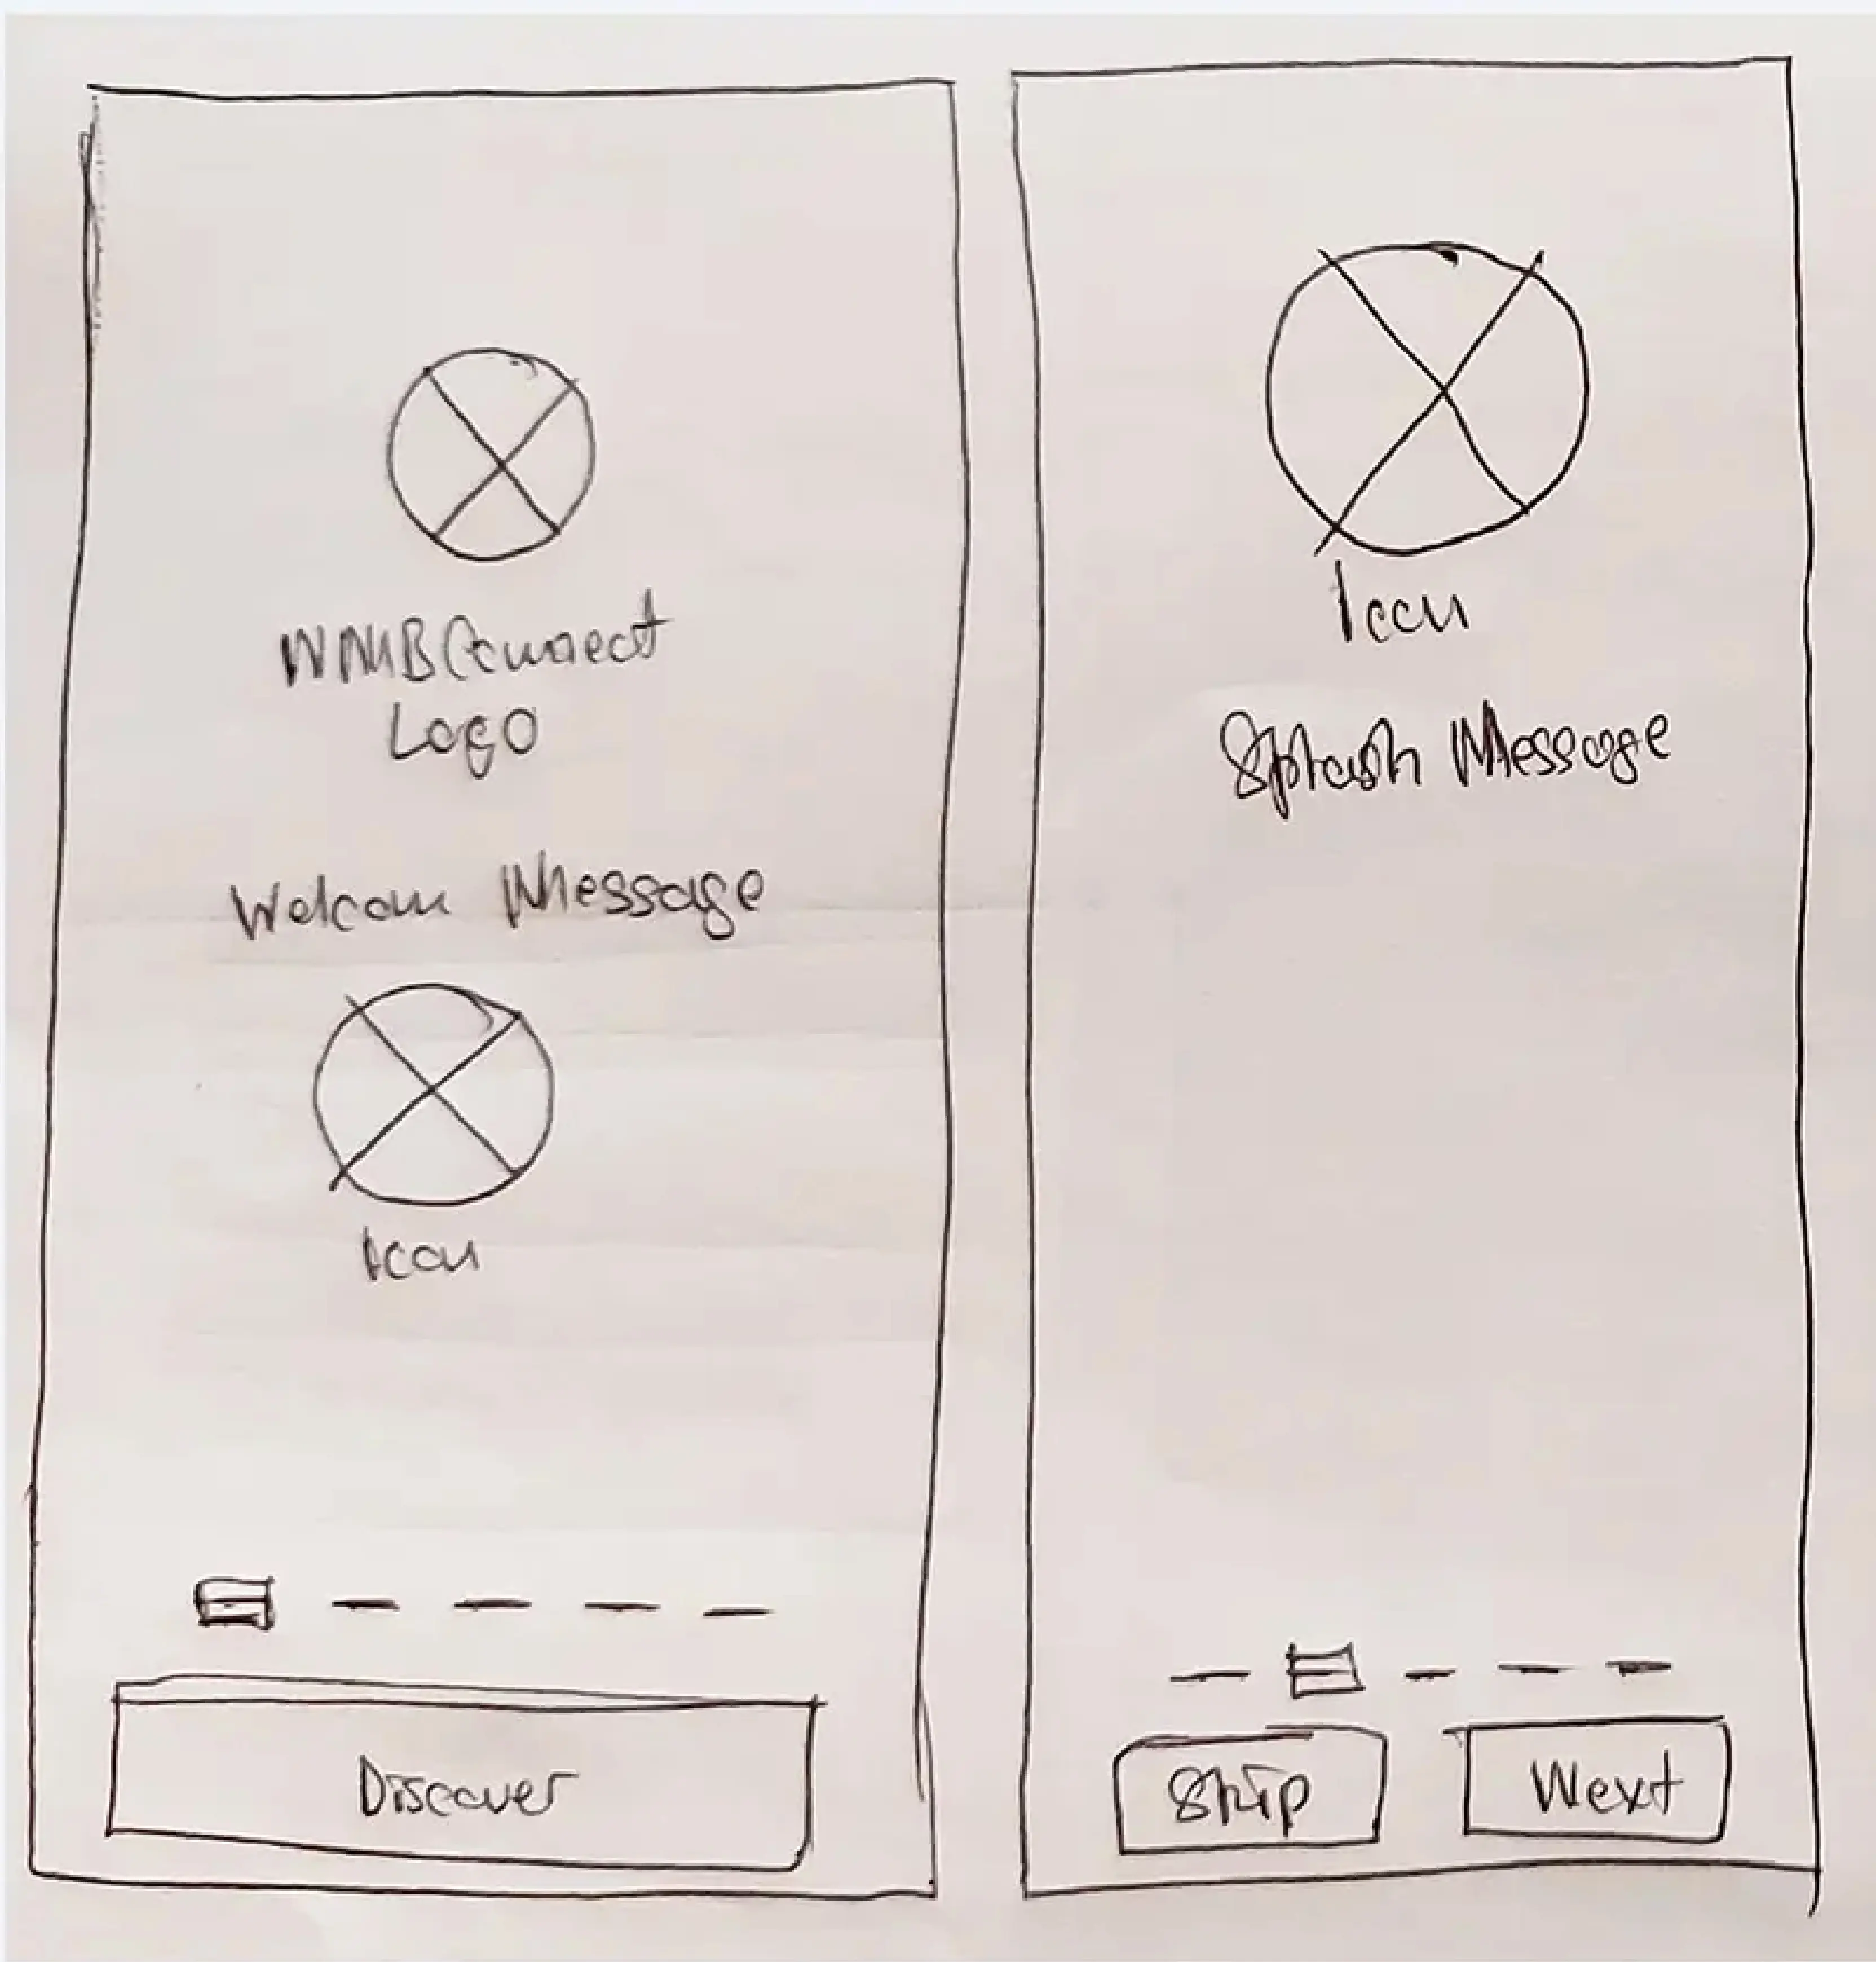 WMBConnect
Logo
Welcom Message
Icon
Discover
Icon
Splash Message
Skip
Next